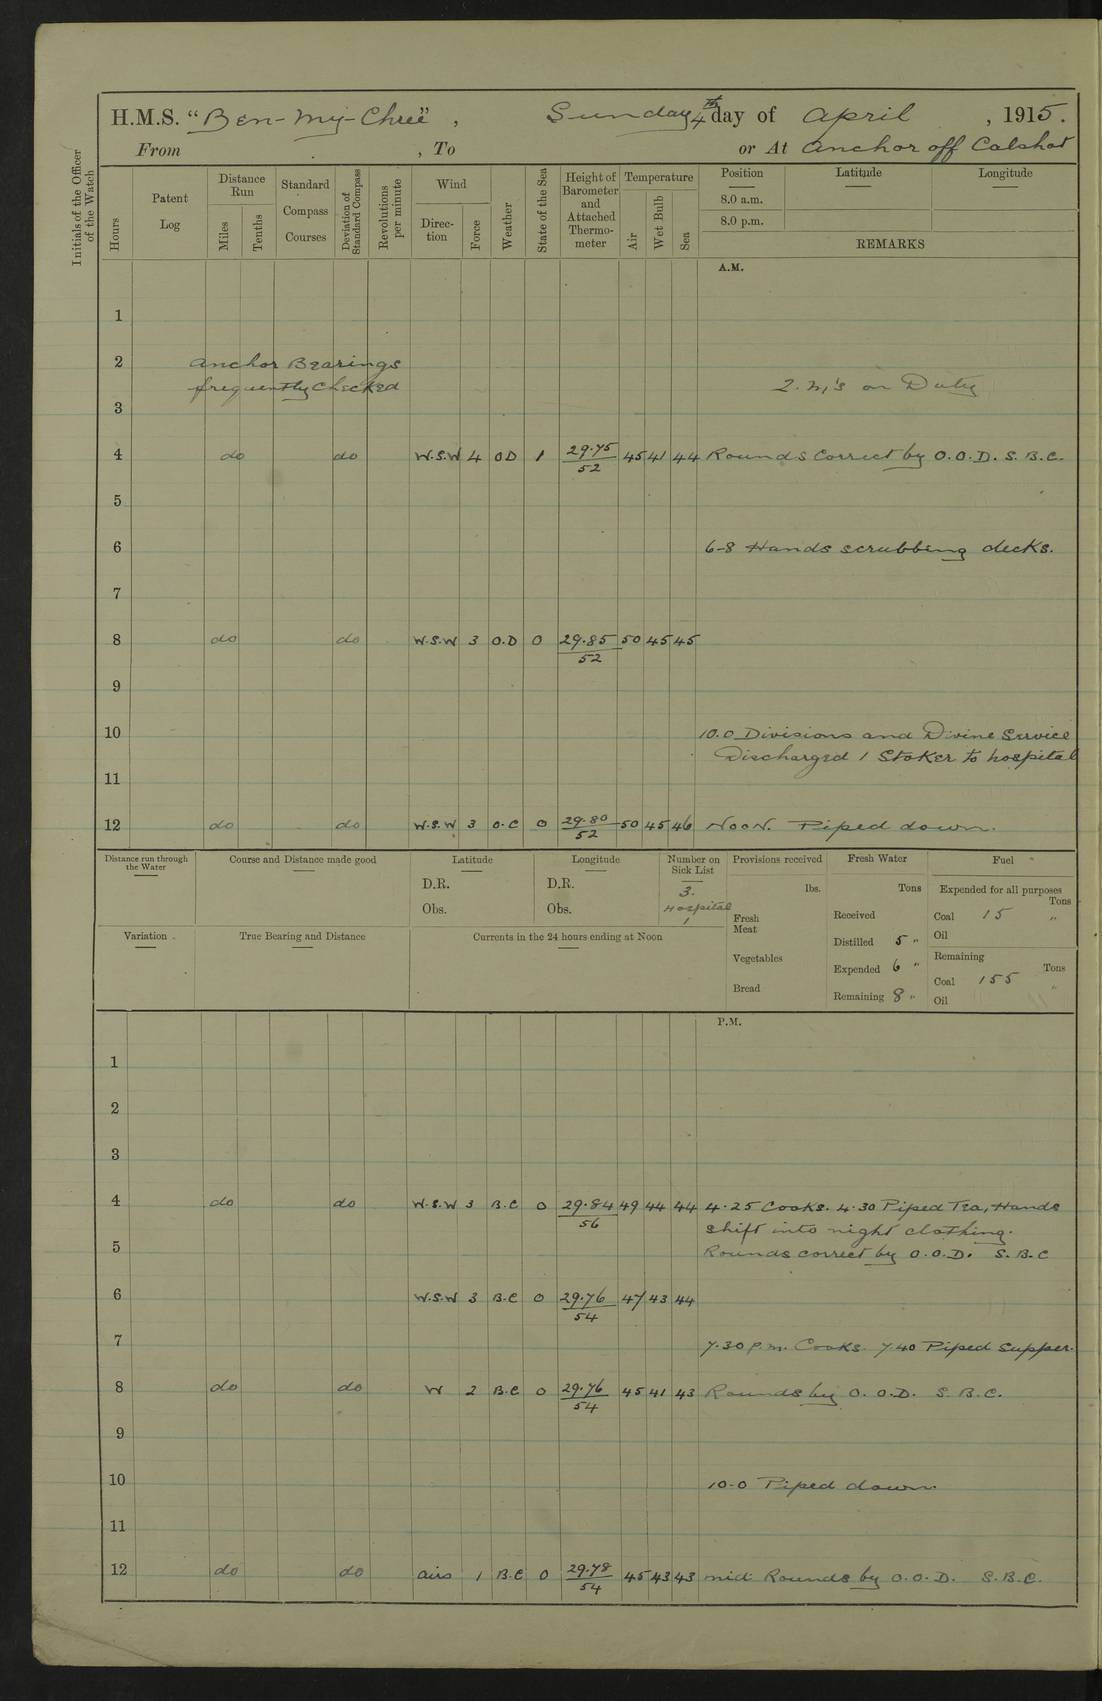 H.M.S. "Ben-my-Chree", Sunday 4th day of April, 1915.
From , To or At Anchor off Calshot
Initials of the Officer of the Watch
Hours
Patent Log
Distance Run
Miles
Tenths
Standard Compass Courses
Deviation of Standard Compass
Revolutions per minute
Wind
Direction
Force
Weather
State of the Sea
Height of Barometer and Attached Thermometer
Temperature
Air
Wet Bulb
Sea
Position
8.0 a.m.
8.0 p.m.
Latitude
Longitude
REMARKS
A.M.
1
2 Anchor Bearings
frequently Checked 2. on Duty
3
4 do do W.S.W 4 OD 1 29.75/52 45 41 44 Rounds correct by O.O.D. S.B.C.
5
6 6-8 Hands scrubbing decks.
7
8 do do W.S.W 3 O.D 0 29.85/52 50 45 45
9
10 10.0 Divisions and Divine Service
Discharged 1 Stoker to hospital
11
12 do do W.S.W 3 O.C 0 29.80/52 50 45 46 Noon. Piped down.
Distance run through the Water
Course and Distance made good
Latitude
D.R.
Obs.
Longitude
D.R.
Obs.
Number on Sick List
3.
Hospital
1
Variation
True Bearing and Distance
Currents in the 24 hours ending at Noon
Provisions received
lbs.
Fresh Meat
Vegetables
Bread
Fresh Water
Tons
Received
Distilled 5 "
Expended 6 "
Remaining 8 "
Fuel
Expended for all purposes
Tons
Coal 15 "
Oil
Remaining
Tons
Coal 155 "
Oil
P.M.
1
2
3
4 do do W.S.W 3 B.C 0 29.84/56 49 44 44 4.25 Cooks. 4.30 Piped Tea, Hands
shift into night clothing.
5 Rounds correct by O.O.D. S.B.C
6 W.S.W 3 B.C 0 29.76/54 47 43 44
7 7.30 p.m. Cooks 7.40 Piped Supper.
8 do do W 2 B.C 0 29.76/54 45 41 43 Rounds by O.O.D. S.B.C.
9
10 10-0 Piped down.
11
12 do do airs 1 B.C 0 29.78/54 45 43 43 mid: Rounds by O.O.D. S.B.C.